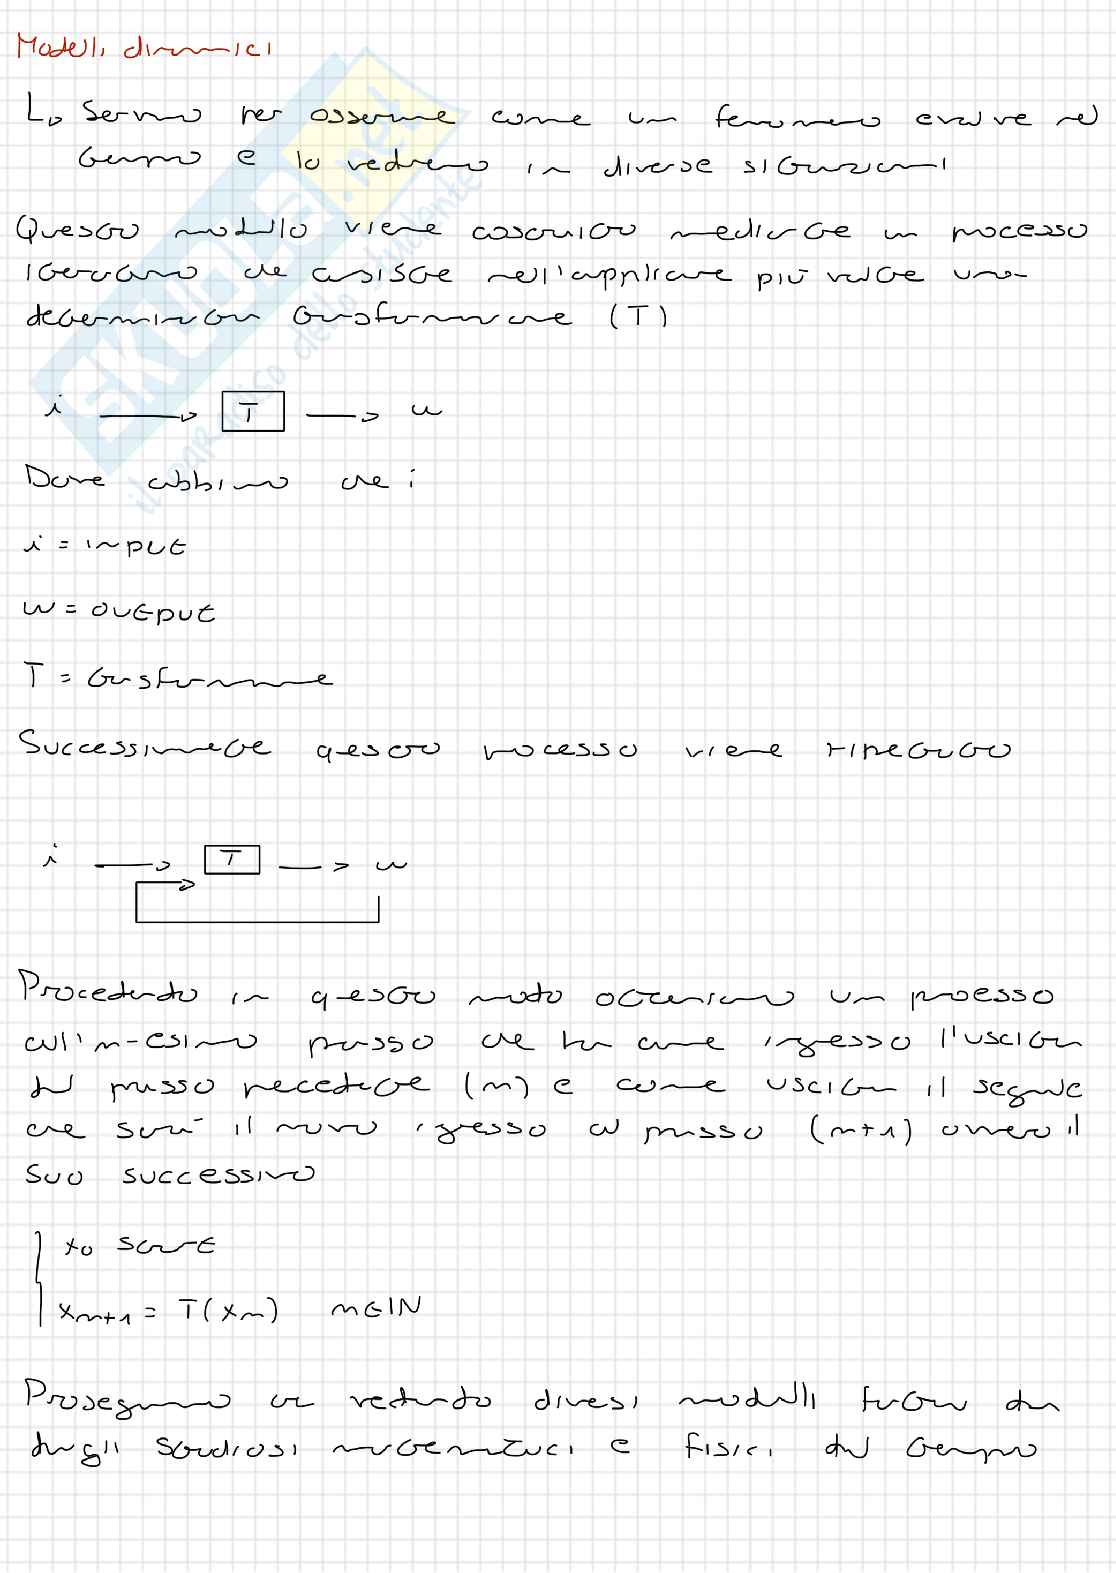 Modelli dinamici
↳ Servono per osservare come un fenomeno evolve nel
tempo e lo vedremo in diverse situazioni
Questo modello viene costruito mediante un processo
iterativo che consiste nell'applicare più volte una
determinata trasformazione (T)
i → T → w
Dove abbiamo che:
i = input
w = output
T = trasformazione
Successivamente questo processo viene ripetuto
i → T → w
Procedendo in questo modo otteniamo un processo
all'n-esimo passo che ha come ingresso l'uscita
del passo precedente (n) e come uscita il segnale
che sarà il nuovo ingresso al passo (n+1) ovvero il
suo successivo
x0 start
xn+1 = T(xn) n∈IN
Proseguiamo ora vedendo diversi modelli trovati da
degli studiosi matematici e fisici del tempo
SKUOLA.net
il paradiso dello studente